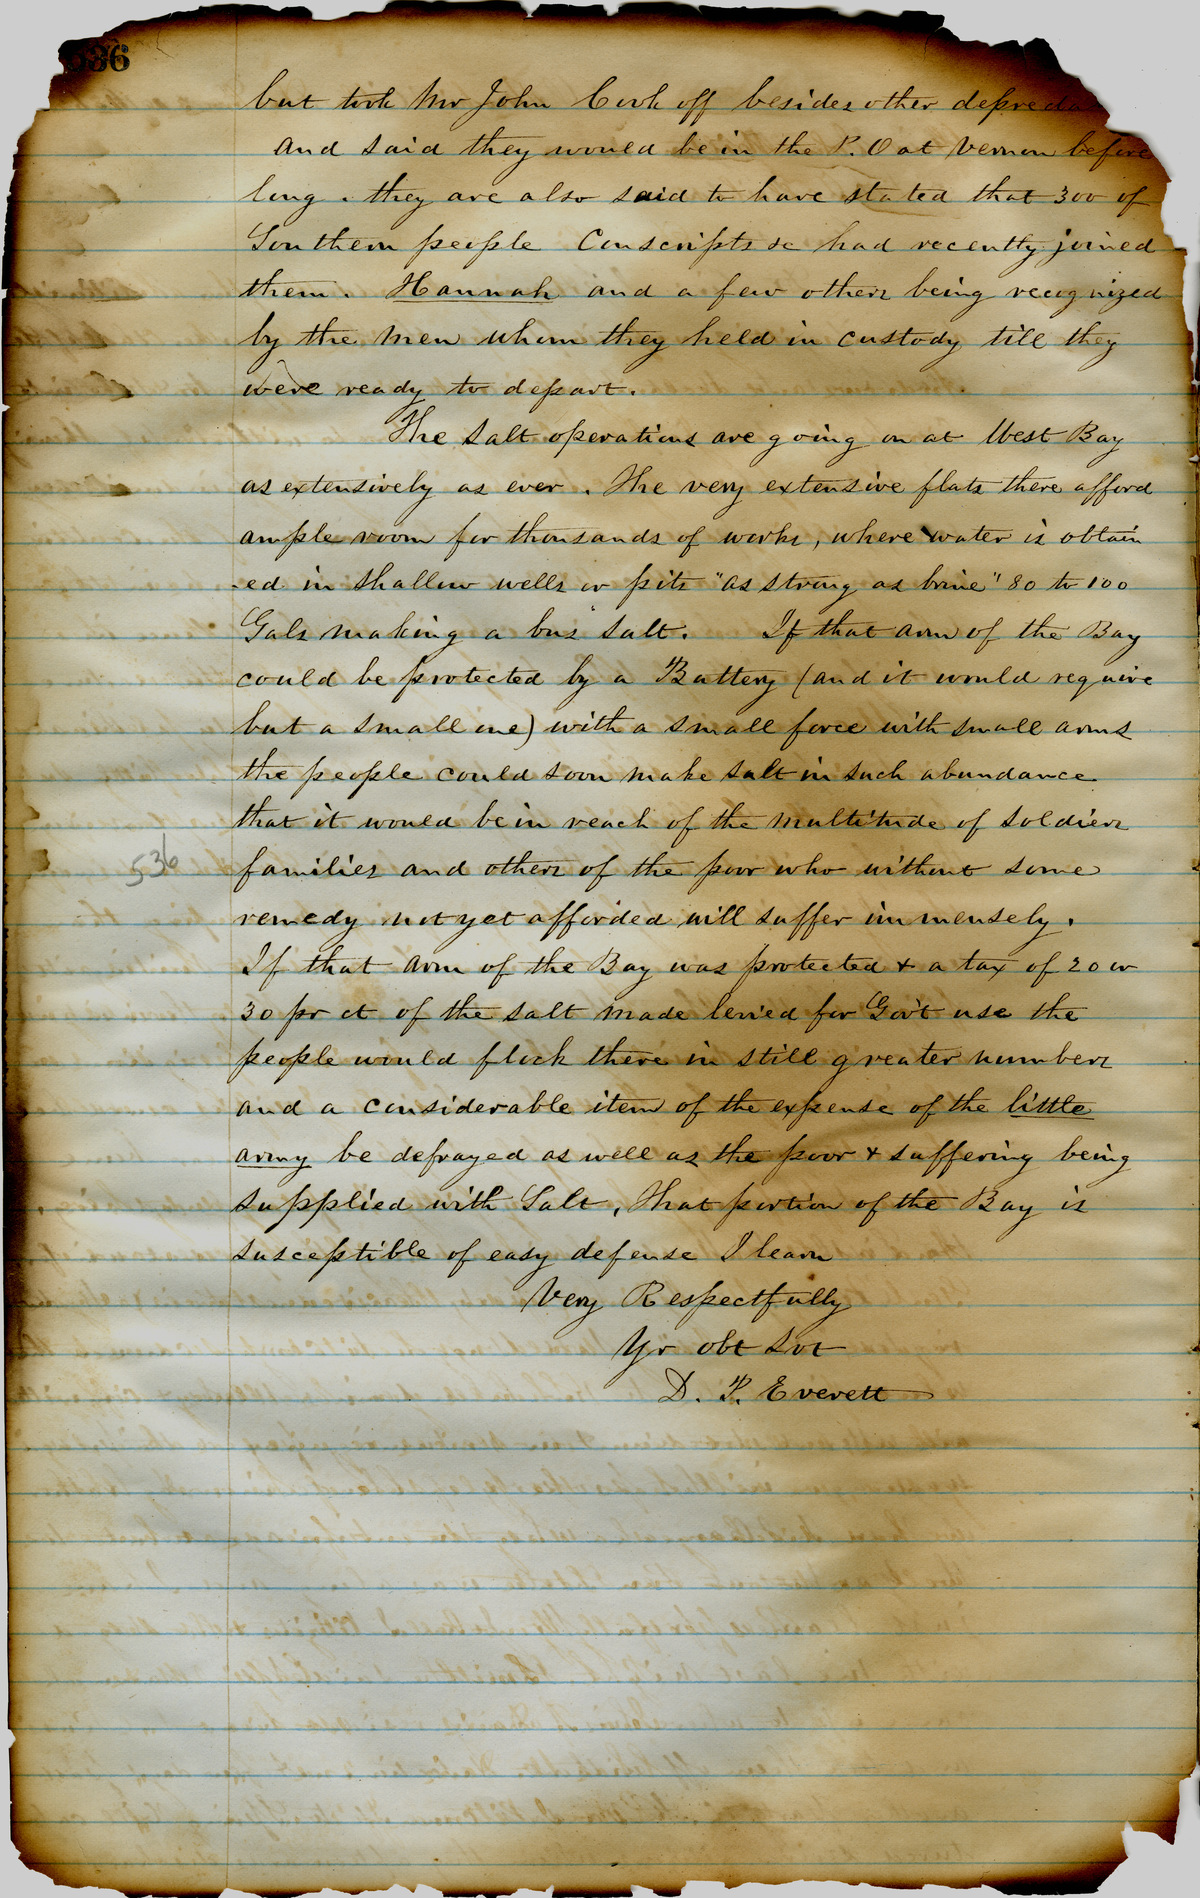 536
but took Mr John Cook off besides other
and said they would be in the P. O at Vernon before
long. they are also said to have stated that 300 of
Southern people Conscripts &c had recently joined
them. Hannah and a few others being recognized
by the men whom they held in custody till they
were ready to depart.
The salt operations are going on at West Bay
as extensively as ever. The very extensive flats there afford
ample room for thousands of works, where water is obtain
-ed in shallow wells or pits "as strong as brine" 80 to 100
Gals making a bus salt. If that arm of the Bay
could be protected by a Battery (and it would require
but a small one) with a small force with small arms
the people could soon make salt in such abundance
that it would be in reach of the multitude of soldiers
536
families and others of the poor who without some
remedy not yet afforded will suffer immensely.
If that arm of the Bay was protected & a tax of 20 or
30 pr ct of the salt made levied for Gov't use the
people would flock there in still greater numbers
and a considerable item of the expense of the little
army be defrayed as well as the poor & suffering being
supplied with Salt, That portion of the Bay is
susceptible of easy defense I learn
Very Respectfully
Yr obt Svt
D. P. Everett